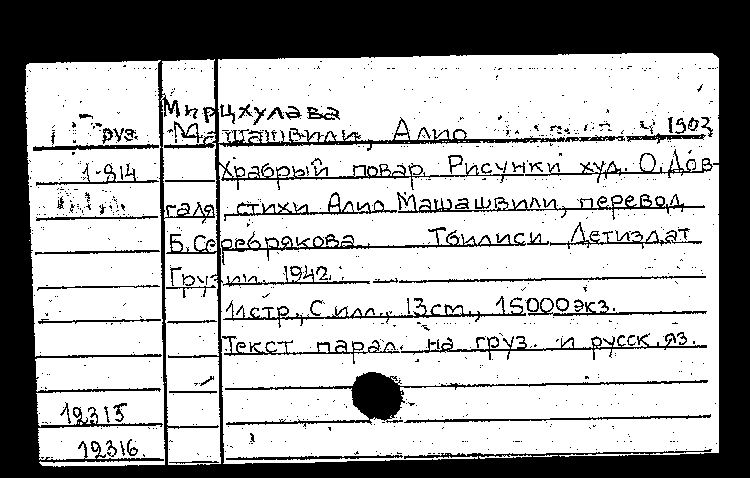 Мирцхулава
Груз. Машашвили, Алио 1903
1-814 Храбрый повар. Рисунки худ. О. Дов-
галя, стихи Алио Машашвили, перевод
Б. Серебрякова. Тбилиси. Детиздат
Грузии. 1942.
11стр., С илл., 13см., 15000экз.
Текст парал. на груз. и русск. яз.
12315
12316.